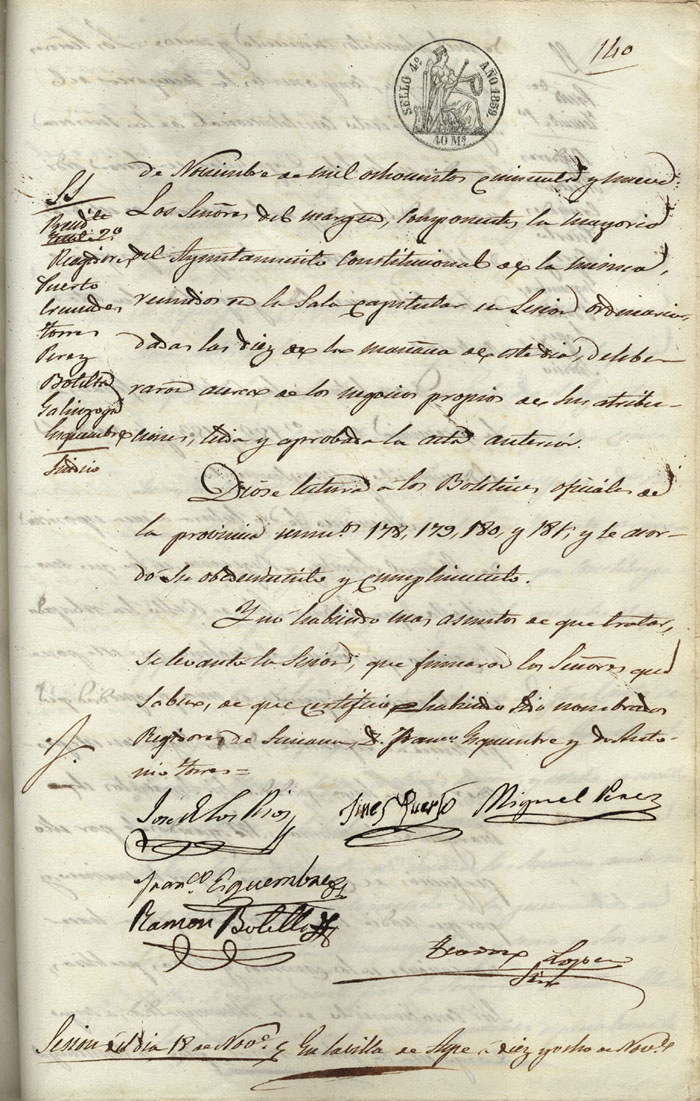 140
SELLO 4º AÑO 1859
40 Ms.
de Noviembre de mil ochocientos cincuenta y nueve
Los Señores del margen, componentes la mayoria
del Ayuntamiento Constitucional de la misma,
reunidos en la Sala capitular en Sesion ordinaria,
dadas las diez de la mañana de este dia, delibe-
raron acerca de los negocios propios de sus atribu-
ciones, leida y aprobada la acta anterior.
SS
Presid.te
Regidores
Puerto
Torres
Perez
Botella
Galinzoga
Esquembre
Sindico
Diose lectura a los Boletines oficiales de
la provincia num.os 178, 179, 180, y 181, y se acor-
dó su obedecimiento y cumplimiento.
Y no habiendo mas asuntos de que tratar,
se levantó la Sesion, que firmaron los Señores que
saben, de que certifico habiendo sido nombrados
Regidores de Semana, D. Fran.co Esquembre y D. Anto-
nio Torres=
José de los Rios
Gines Puerto
Miguel Perez
Fran.co Esquembre
Ramon Botella
Teodoro Lopez
Srio
Sesion del dia 18 de Nov.e
En la villa de Aspe à diez y ocho de Nov.e